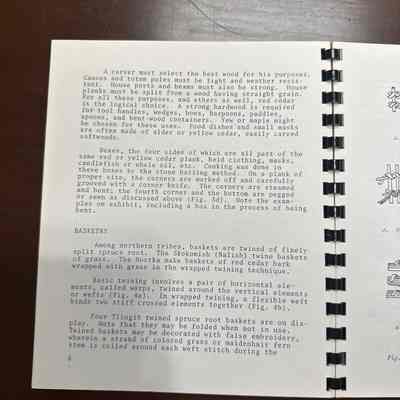 A carver must select the best wood for his purposes.
Canoes and totem poles must be light and weather resis-
tant. House posts and beams must also be strong. House
planks must be split from a wood having straight grain.
For all these purposes, and others as well, red cedar
is the logical choice. A strong hardwood is required
for tool handles, wedges, bows, harpoons, paddles,
spoons, and bent wood containers. Yew or maple might
be chosen for these uses. Food dishes and small masks
are often made of alder or yellow cedar, easily carved
softwoods.
Boxes, the four sides of which are all part of the
same red or yellow cedar plank, held clothing, masks,
candlefish or whale oil, etc. Cooking was done in
these boxes by the stone boiling method. On a plank of
proper size, the corners are marked off and carefully
grooved with a corner knife. The corners are steamed
and bent; the fourth corner and the bottom are pegged
or sewn as discussed above (Fig. 3d). Note the exam-
ples on exhibit, including a box in the process of being
bent.
BASKETRY
Among northern tribes, baskets are twined of finely
split spruce root. The Skokomish (Salish) twine baskets
of grass. The Nootka make baskets of red cedar bark
wrapped with grass in the wrapped twining technique.
Basic twining involves a pair of horizontal ele-
ments, called warps, twined around the vertical elements
or wefts (Fig. 4a). In wrapped twining, a flexible weft
binds two stiff crossed elements together (Fig. 4b).
Four Tlingit twined spruce root baskets are on dis-
play. Note that they may be folded when not in use.
Twined baskets may be decorated with false embroidery,
wherein a strand of colored grass or maidenhair fern
stem is coiled around each weft stitch during the
6
Fig.